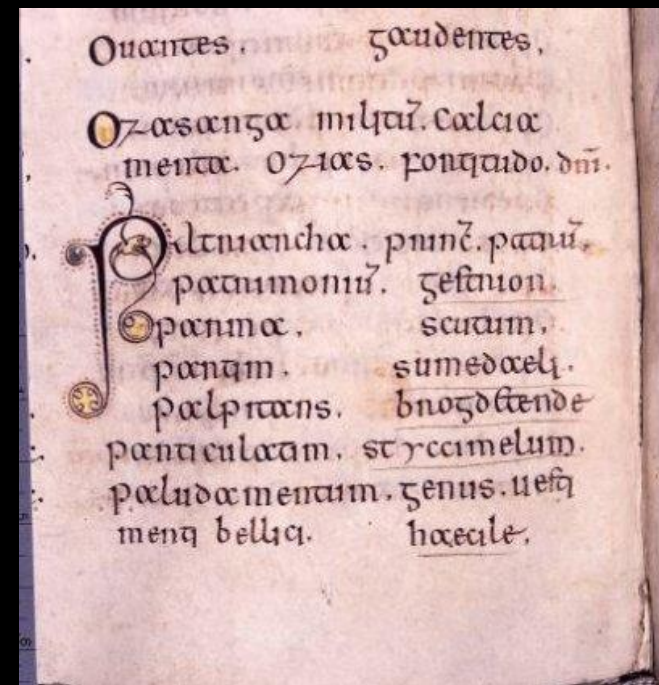 Ouantes. gaudentes.
Ozasanga militū. calcia
menta. ozias. fortitudo. dn̄i.
Patriarcha. princ̄. patrū.
patrimoniū. gestrion.
parma. scutum.
partim. sumedaeli.
palpitans. brogdęttende
particulatim. styccimelum.
paludamentum. genus. uesti
menti bellici. haecile.